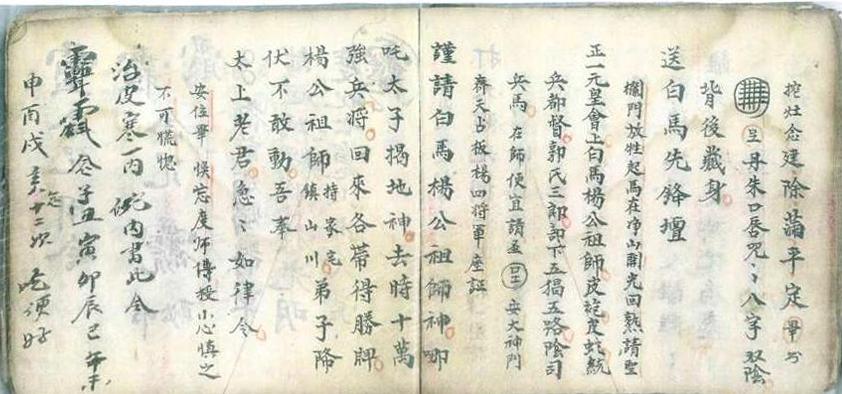 挖灶念建除满平定
丹朱口唇咒ミ八字双陰
背後藏身
送白馬先鋒壇
欄門放牲起馬在净山開光回熟請聖
正一元皇會上白馬楊公祖師皮袍皮蛇統
兵都督郭氏三郎部下五猖五路陰司
兵馬在師便宜請 安大神門
齊天占板楊四将軍座証
謹請白馬楊公祖師神哪
吒太子揭地神去時十萬
強兵將回來各带得勝牌
楊公祖師持家宅鎮山川弟子降
伏不敢動吾奉
太上老君急ミ如律令
安位畢悞忘度師傳授小心慎之
不可慌惚
治皮寒一內碗內書此令
令子丑寅卯辰巳午未
申酉戌亥十二次吃便好